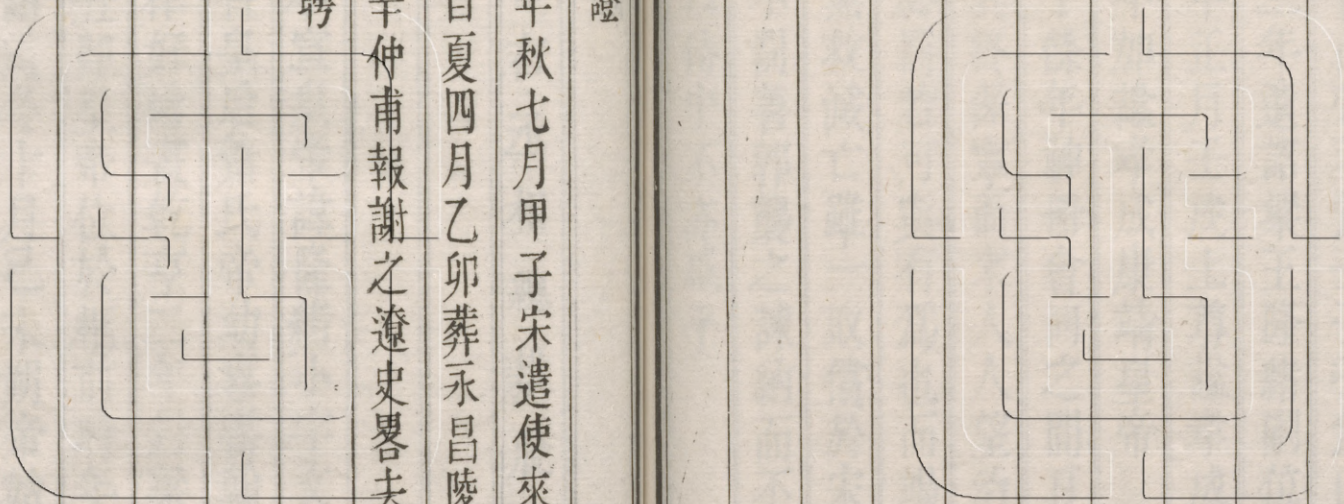 證
年秋七月甲子宋遣使來
夏四月乙卯葬永昌陵
辛仲甫報謝之遼史畧去
聘